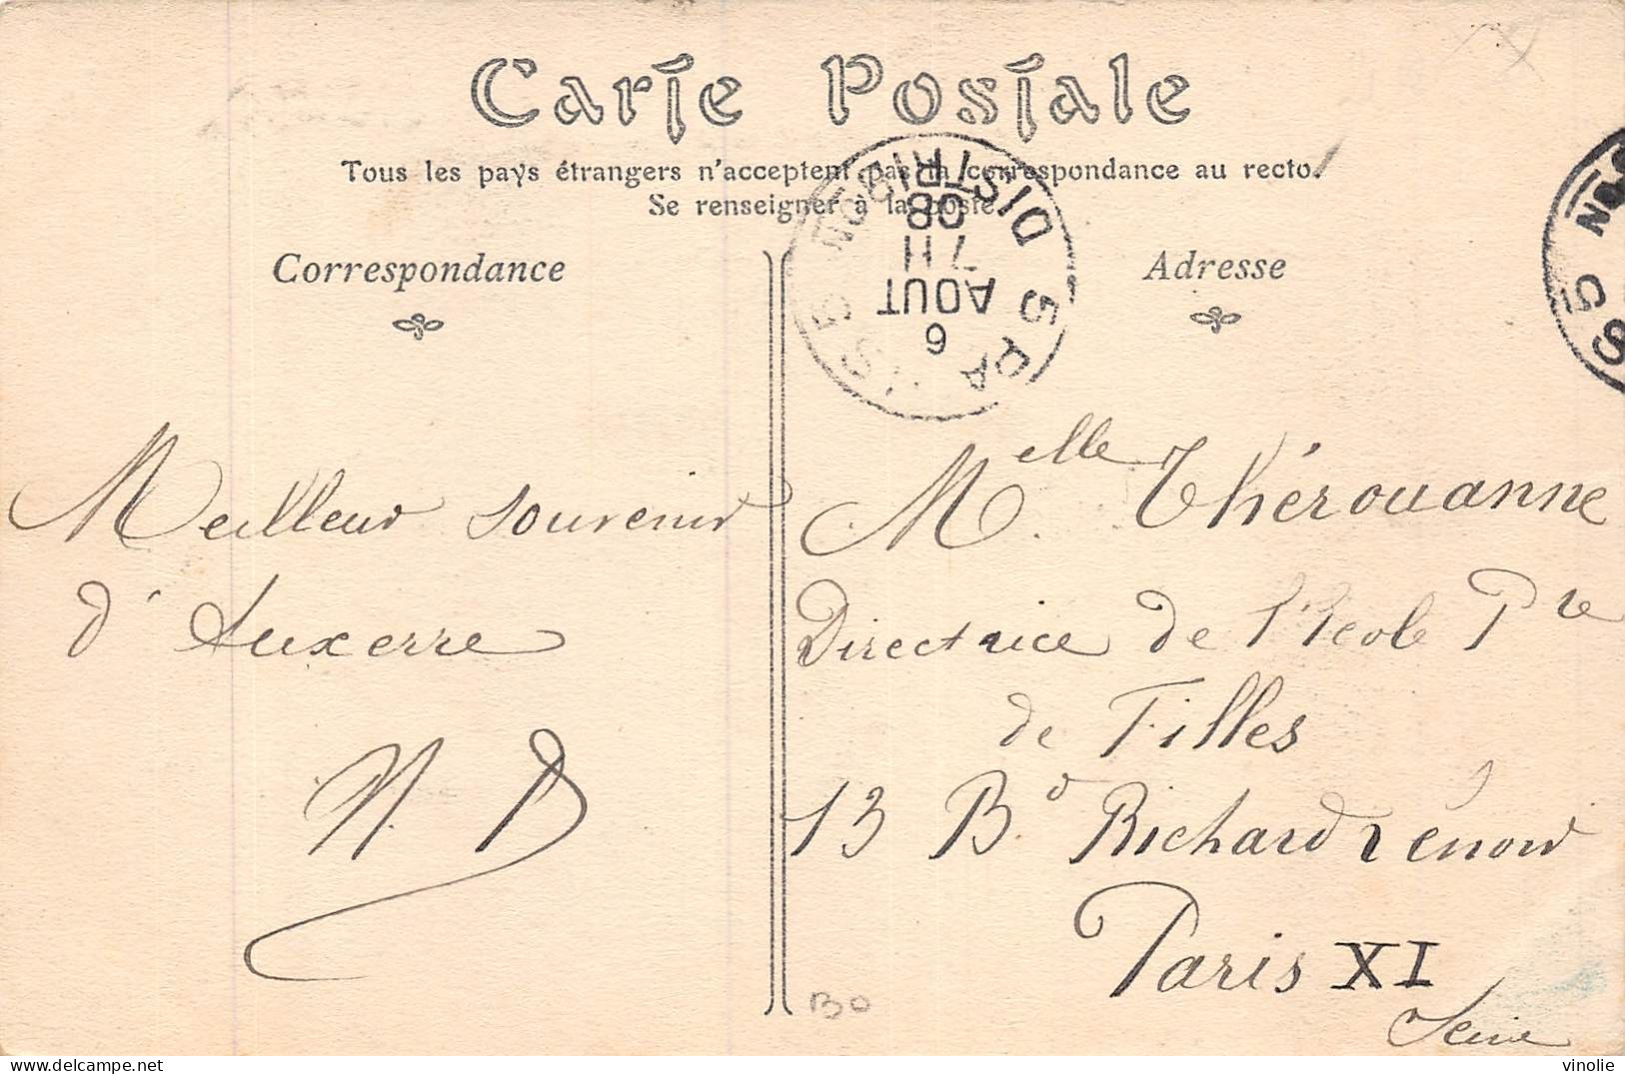 Carte Postale
Tous les pays étrangers n'acceptent pas la correspondance au recto.
Se renseigner à la poste
Correspondance
Adresse
PARIS
DISTRIBON
6
AOUT
7H
08
Meilleur souvenir
d'Auxerre
Melle Thérouanne
Directrice de l'Ecole Pre
de Filles
13 Bd Richard Lenoir
Paris XI
Seine
BO
vinolie